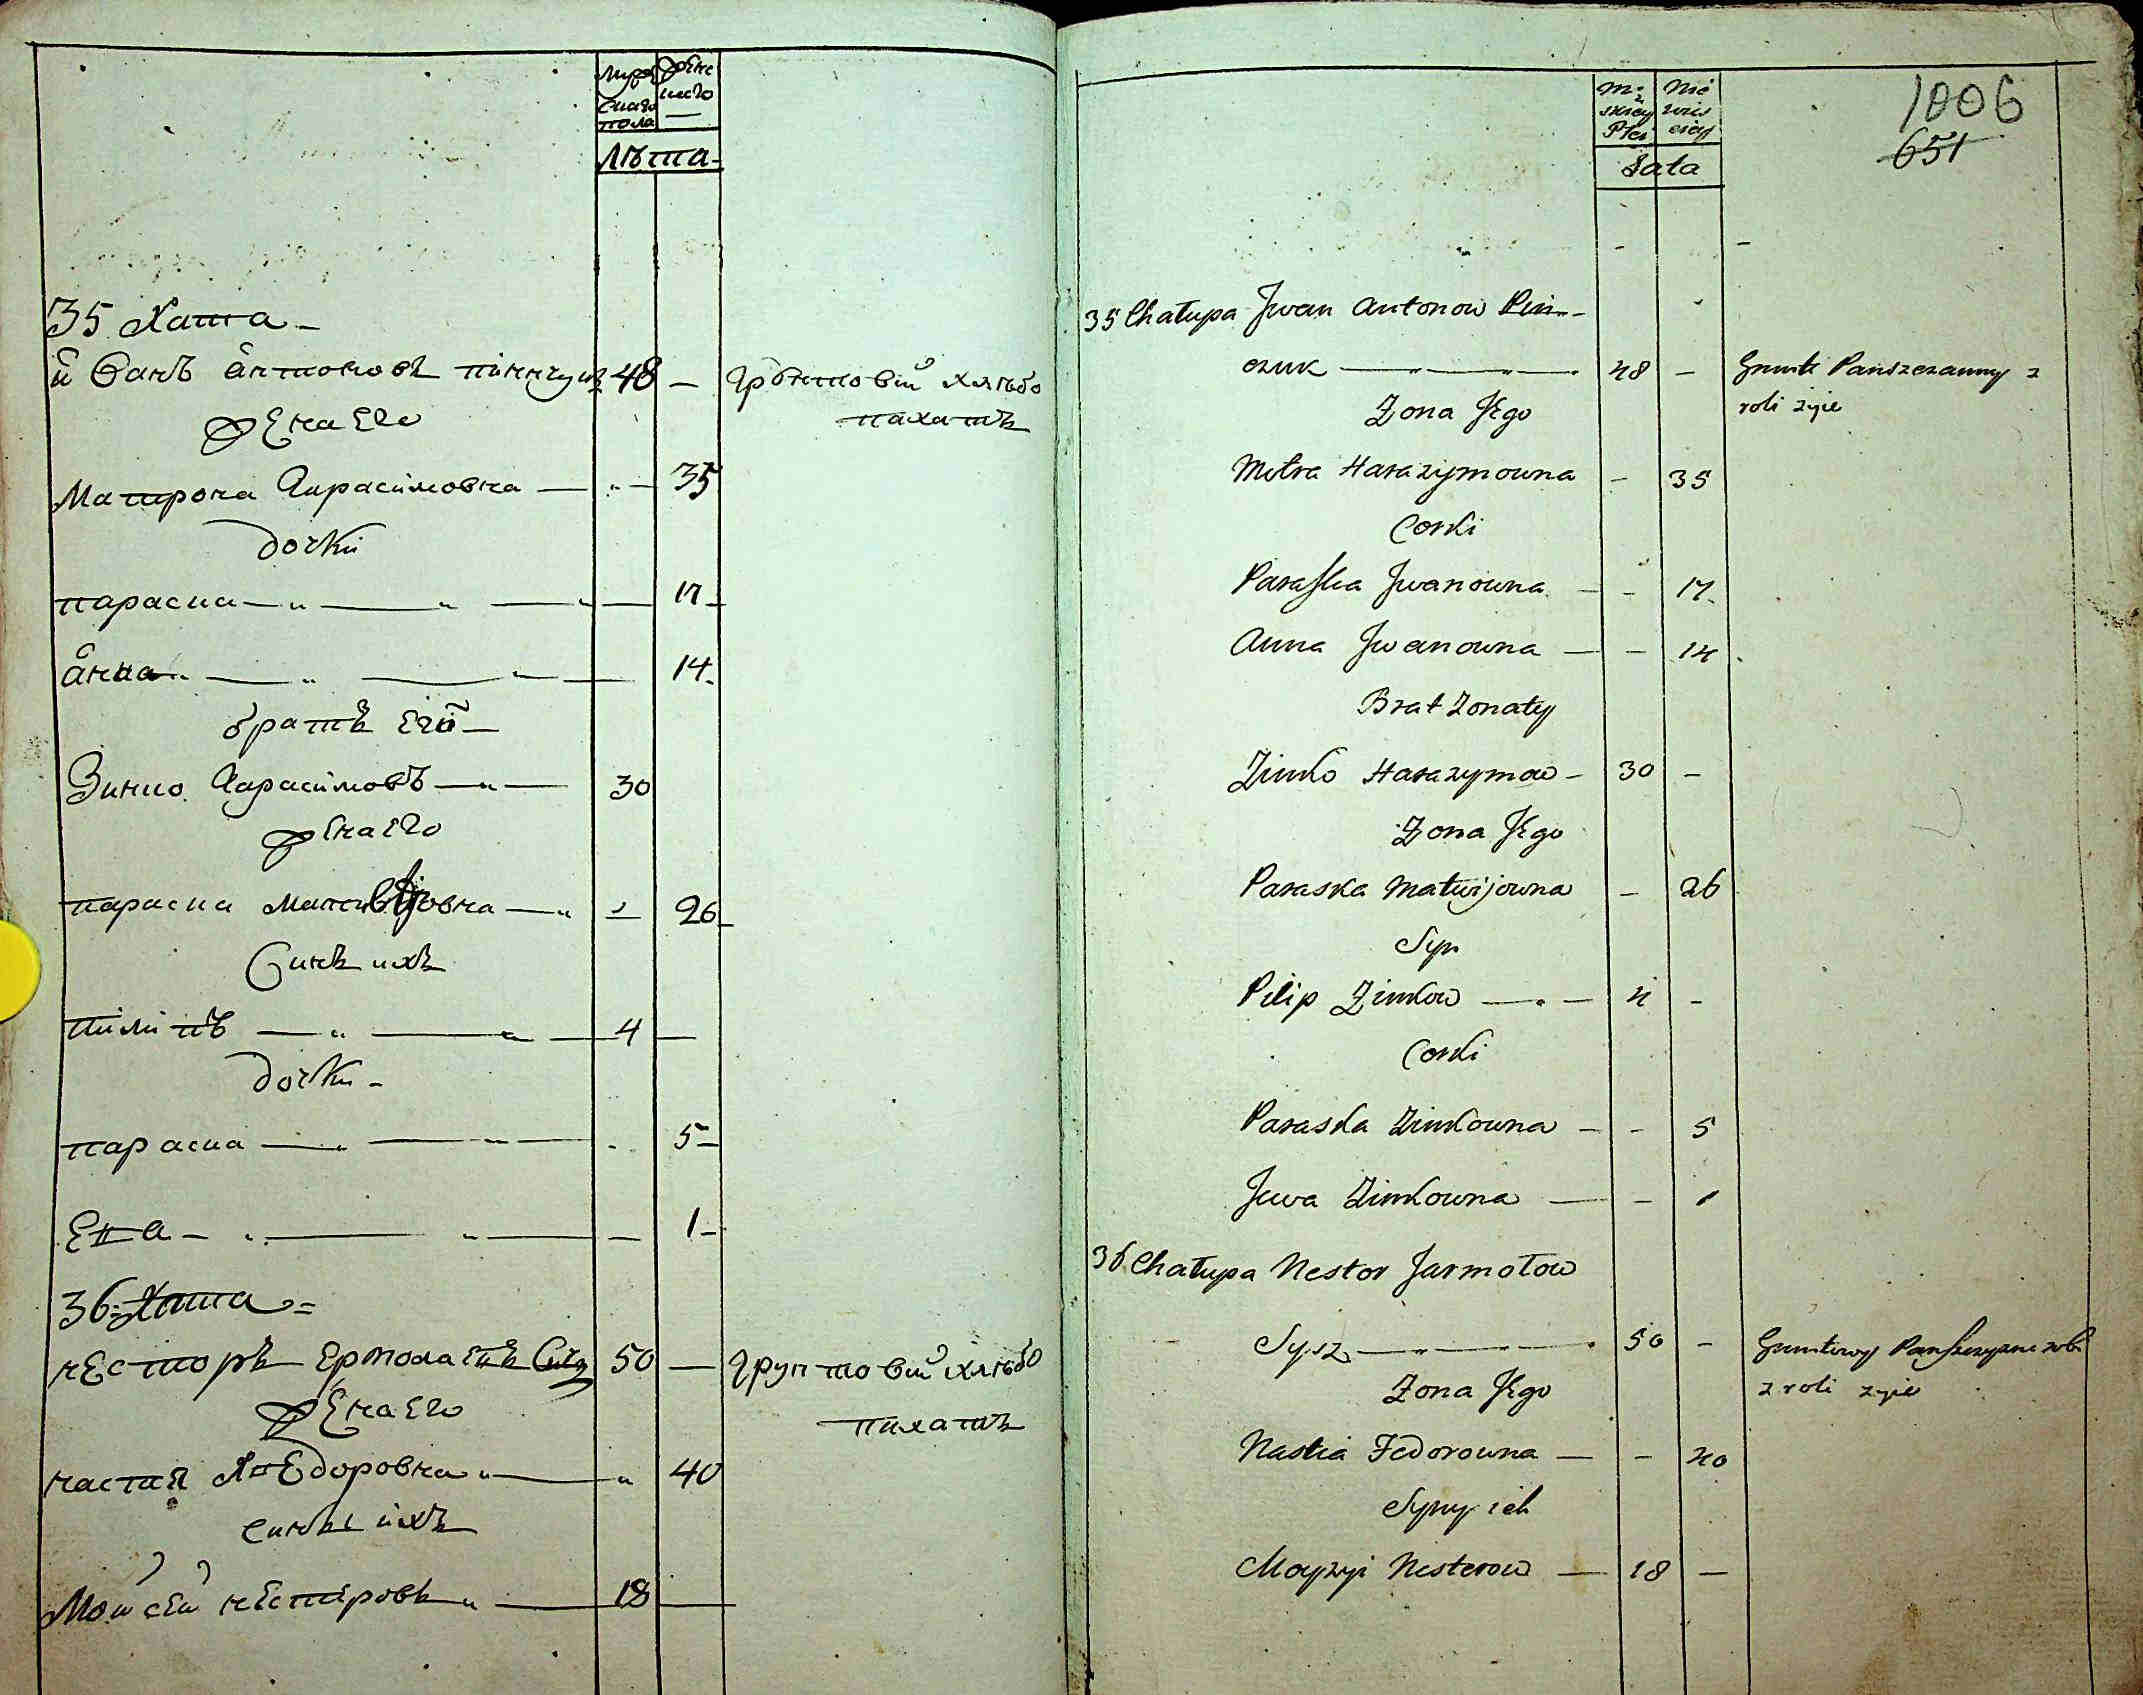 Муже
скаго
пола
Женс
каго
Лѣта
35 Хата
иванъ антоновъ пинчукъ 48 — грунтовий хлѣбо
жена его
пахатъ
Матрона Харасимовна — 35
дочки
параска — 17
анна — 14
братъ его
Зинко Харасимовъ — 30
жена его
параска матвѣовна — 26
Синъ ихъ
пилипъ — 4 —
дочки
параска — 5
Ева — 1
36 Хата
несторъ ермола 50 — грунтовий хлѣбо
жена его
пахатъ
настая Хведоровна — 40
сины ихъ
Мойсей нестеровъ — 18
Mę
skiey
Płci
Nie
wies
ciey
Lata
1006
651
35 Chałupa Jwan Antonow Pin-
czuk — 48 — Grunt Panszczanny z
roli zyie
Zona Jego
Motra Harazymowna — 35
Corki
Paraska Jwanowna — 17
Anna Jwanowna — 14
Brat Zonaty
Zinko Harazymow — 30 —
Zona Jego
Paraska Matwijowna — 26
Syn
Pilip Zinkow — 4 —
Corki
Paraska Zinkowna — 5
Juva Zinkowna — 1
36 Chałupa Nestor Jarmołow
Sysz — 50 — Gruntowy
z roli zyie
Zona Jego
Nastia Fedorowna — 40
Syny ich
Moyzyi Nesterow — 18 —